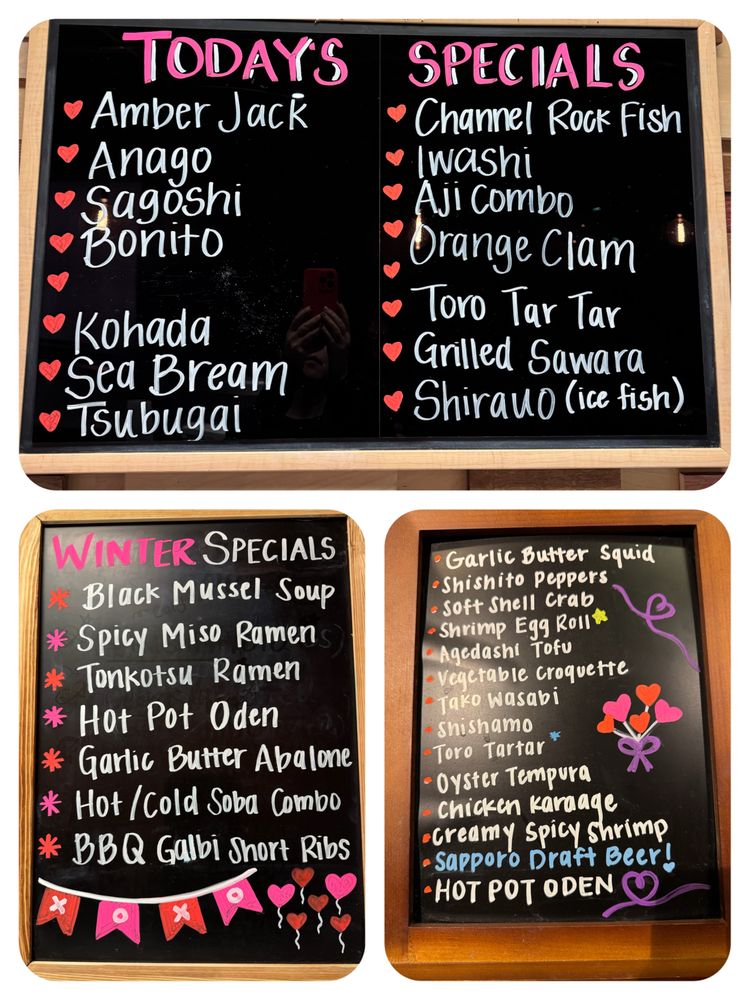 TODAY'S SPECIALS
Amber Jack
Anago
Sagoshi
Bonito
Kohada
Sea Bream
Tsubugai
Channel Rock Fish
Iwashi
Aji Combo
Orange Clam
Toro Tar Tar
Grilled Sawara
Shirauo (ice fish)
WINTER SPECIALS
Black Mussel Soup
Spicy Miso Ramen
Tonkotsu Ramen
Hot Pot Oden
Garlic Butter Abalone
Hot/Cold Soba Combo
BBQ Galbi Short Ribs
X O X O
Garlic Butter Squid
Shishito Peppers
Soft Shell Crab
Shrimp Egg Roll
Agedashi Tofu
Vegetable Croquette
Tako Wasabi
Shishamo
Toro Tartar
Oyster Tempura
Chicken Karaage
Creamy Spicy Shrimp
Sapporo Draft Beer!
HOT POT ODEN